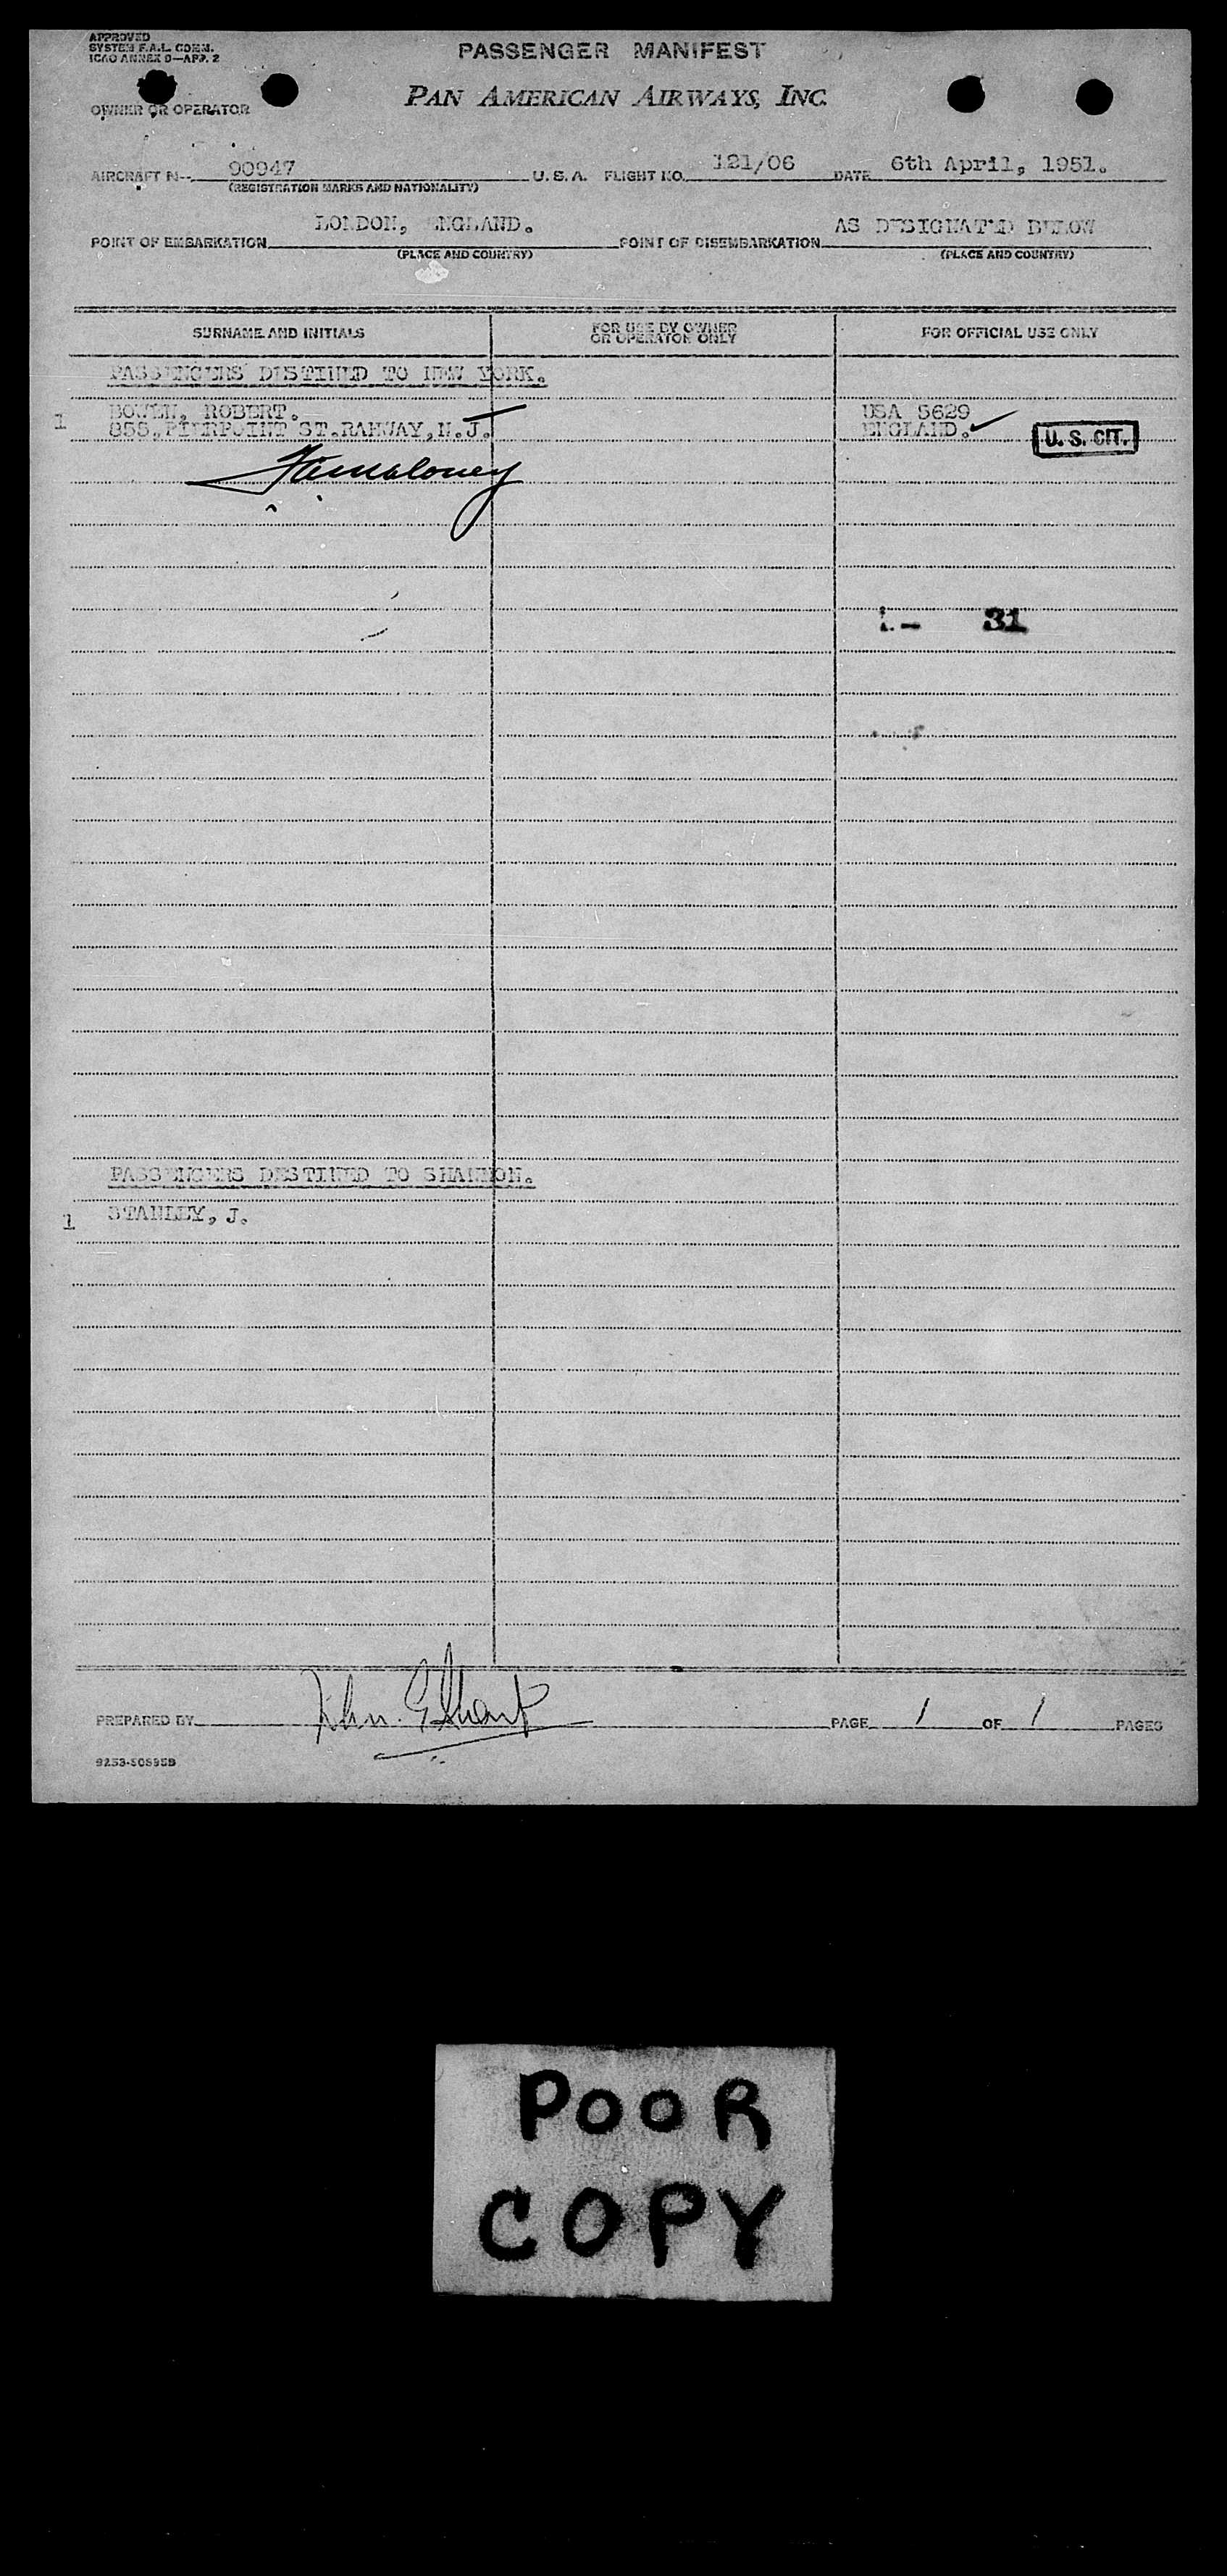 APPROVED
SYSTEM F.A.L. COMM.
ICAO ANNEX 9—APP. 2
PASSENGER MANIFEST
OWNER OR OPERATOR
PAN AMERICAN AIRWAYS, INC.
AIRCRAFT N-- 90947 U.S.A. FLIGHT NO. 121/06 DATE 6th April, 1951.
(REGISTRATION MARKS AND NATIONALITY)
POINT OF EMBARKATION LONDON, ENGLAND. POINT OF DISEMBARKATION AS DESIGNATED BELOW
(PLACE AND COUNTRY) (PLACE AND COUNTRY)
SURNAME AND INITIALS FOR USE BY OWNER OR OPERATOR ONLY FOR OFFICIAL USE ONLY
PASSENGERS DESTINED TO NEW YORK.
1 BOWEN, ROBERT. USA 5629
855, PIERPOINT ST. RAHWAY, N.J. ENGLAND. U. S. CIT.
31
PASSENGERS DESTINED TO SHANNON.
1 STANLEY, J.
PREPARED BY John PAGE 1 OF 1 PAGES
POOR
COPY